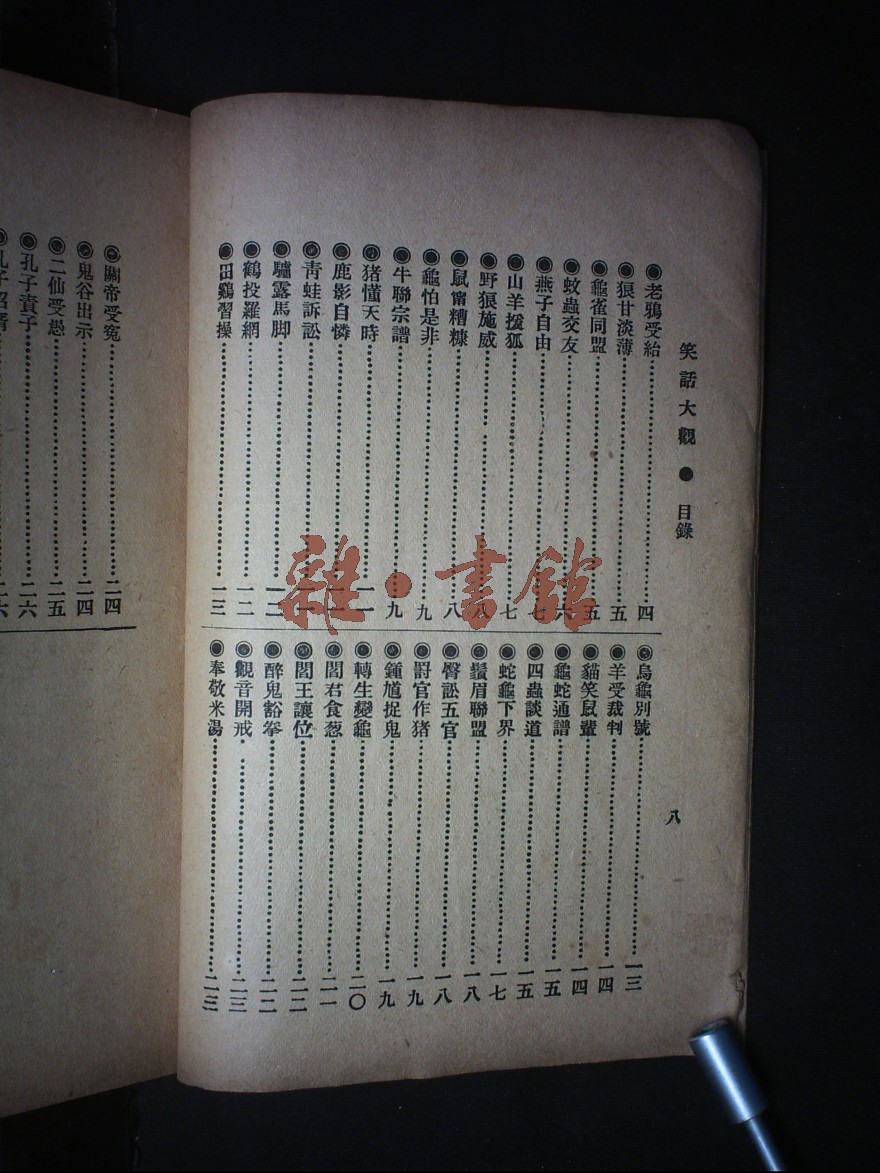 笑話大觀 ● 目錄
八
◉老鴉受給……四
◉狠甘淡薄……五
◉龜雀同盟……五
◉蚊蟲交友……六
◉燕子自由……七
◉山羊援狐……七
◉野狼施威……八
◉鼠甯糟糠……八
◉龜怕是非……九
◉牛聯宗譜……九
◉猪懂天時……一一
◉鹿影自憐……一一
◉靑蛙訴訟……一一
◉驢露馬脚……一二
◉鶴投羅網……一二
◉田鷄習操……一三
◉烏龜別號……一三
◉羊受裁判……一四
◉貓笑鼠輩……一四
◉龜蛇通譜……一五
◉四蟲談道……一五
◉蛇龜下界……一七
◉鬚眉聯盟……一八
◉臀訟五官……一八
◉罸官作猪……一九
◉鍾馗捉鬼……一九
◉轉生變龜……二〇
◉閻君食葱……二一
◉閻王讓位……二二
◉醉鬼豁拳……二二
◉觀音開戒……二三
◉奉敬米湯……二三
◉關帝受寃……二四
◉鬼谷出示……二四
◉二仙受愚……二五
◉孔子責子……二六
二六
雜·書館